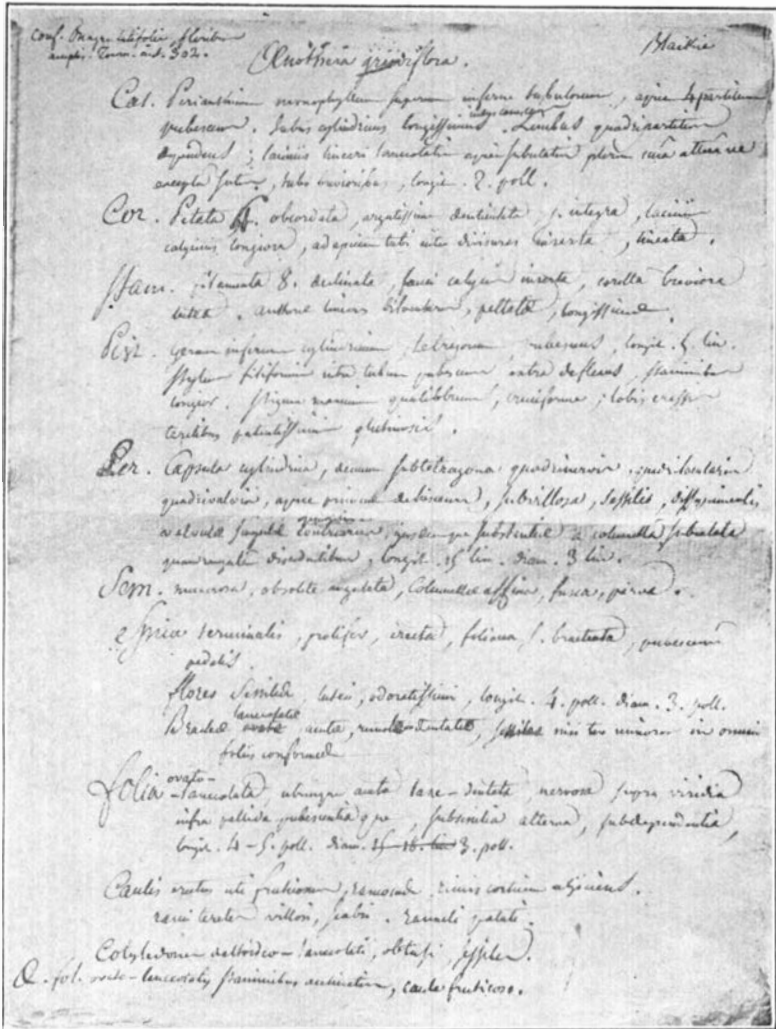 Conf. Onagra latifolia floribus
amplis. Tourn. inst. 302.
Oenothera grandiflora.
Cal. Perianthium monophyllum superum inferne tubulosum, apice 4partitum
pubescens. tubus cylindricus longissimus. Limbus quadripartitus
dependens; laciniis lineari lanceolatis apice subulatis
tubo brevioribus, longit. 2. poll.
Cor. Petala 4. obcordata, argutissime denticulata s. integra, laciniis
calycinis longiora, ad apicem tubi inter divisuras inserta, lineata.
Stam. filamenta 8. declinata, fauci calycis inserta, corolla breviora
lutea. antherae lineares bilocularis, peltatae, longissimae.
Pist. Germen inferum cylindricum, tetragonum, pubescens, longit. 5. lin.
Stylus filiformis intra tubum pubescens extra deflexus, staminibus
longior. Stigma maximum quadrilobum, cruciforme; lobis crassis
teretibus patentissimis glutinosis.
Per. Capsula cylindrica, demum subtetragona quadrinervia, quadrilocularis
quadrivalvis, apice primum dehiscens, subvillosa, sessilis, dissepimentis
valvulae singulae contrariis, substantiae a columella subulata
quadrangulari discedentibus, longit. 15 lin. diam. 3 lin.
Sem. numerosa, obsolete angulata, Columellae affixa, fusca, parva.
Spica terminalis, prolifer, erecta, foliosa s. bracteata, pubescens
pedalis.
flores Sessiles, lutei, odoratissimi, longit. 4. poll. diam. 3. poll.
Bracteae lanceolatae ovatae acutae, dentatae, sessiles minores in omnibus
foliis conformes
folia ovato-lanceolata, utrinque acuta lanc-dentata, nervosa supra viridia
infra pallida pubescentia que, subsessilia alterna, subdependentia,
longit. 4-5. poll. diam. 15-18. lin 3. poll.
Caulis erectus uti fruticosus, ramosus, cinereus corticem abjiciens.
rami teretes villosi, scabri. ramuli patuli.
Cotyledones deltoideo-lanceolati, obtusi, sessiles.
O. fol. ovato-lanceolatis staminibus declinatis, caule fruticoso.